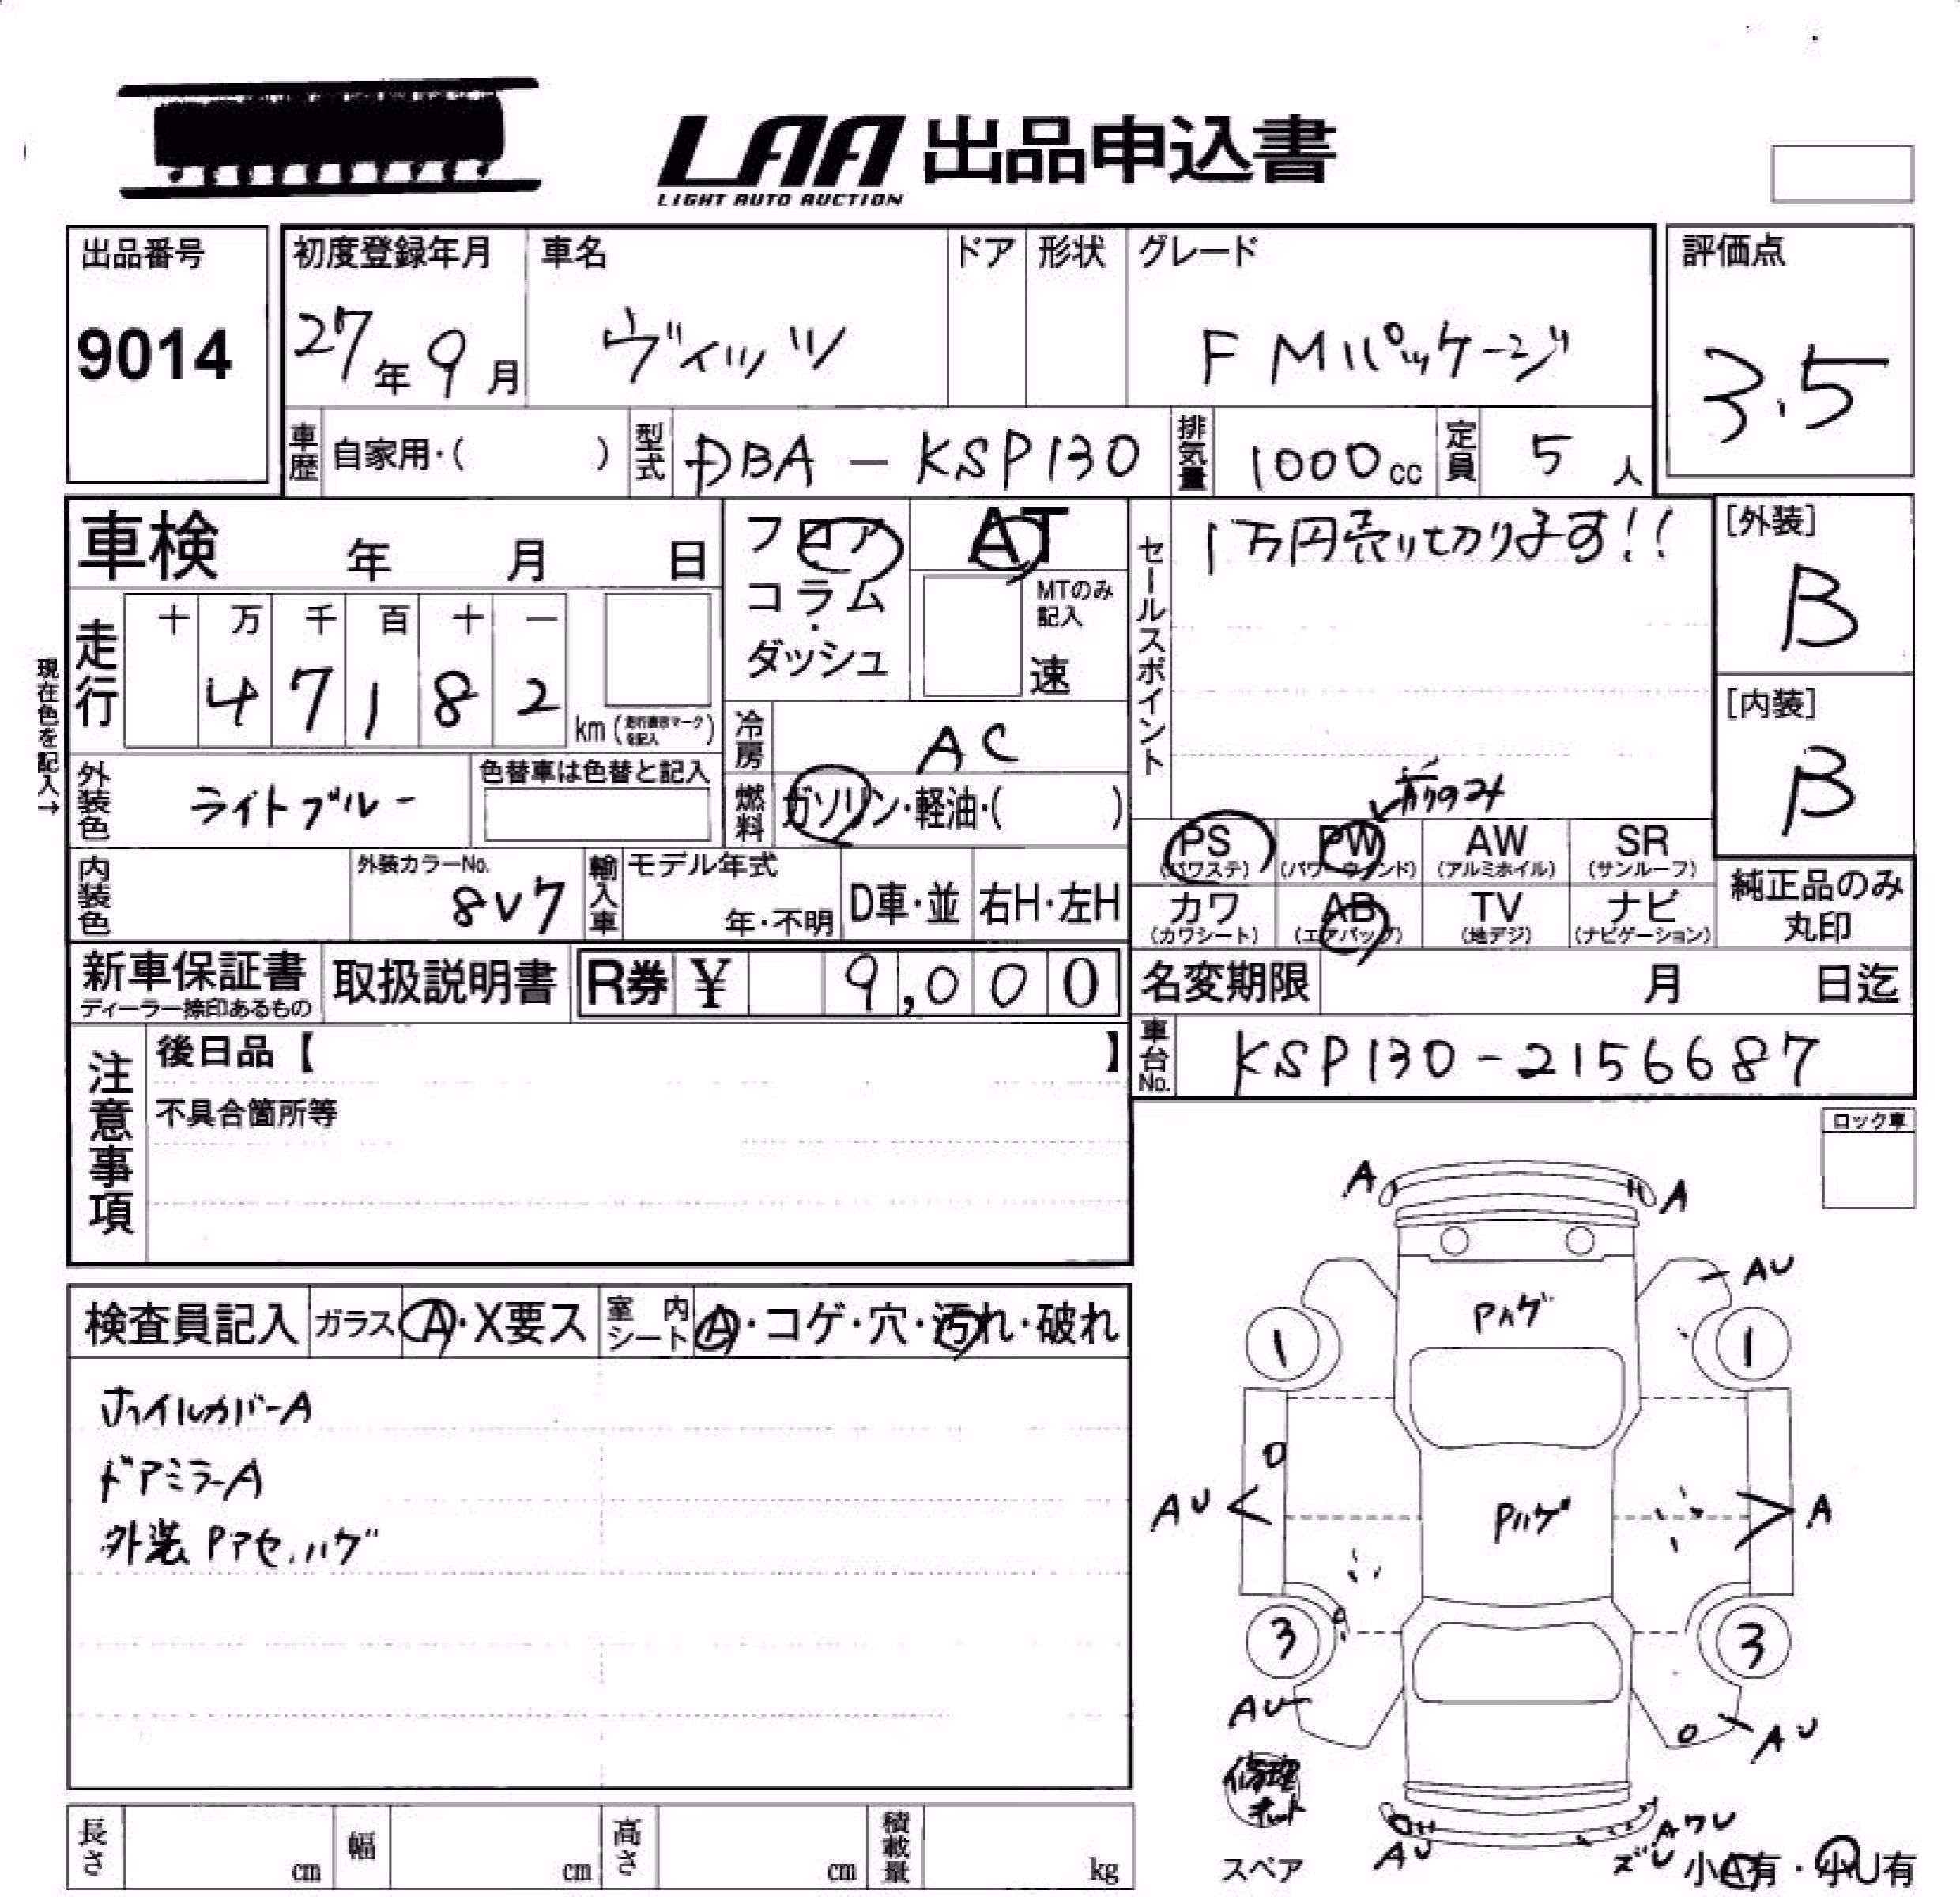 LAA 出品申込書
LIGHT AUTO AUCTION
出品番号
9014
初度登録年月
27年 9月
車名
ヴィッツ
ドア
形状
グレード
F Mパッケージ
評価点
3.5
車歴
自家用・( )
型式
DBA - KSP130
排気量
1000cc
定員
5人
車検 年 月 日
走行
十 万 千 百 十 一
4 7 1 8 2
km (走行画面マークを記入)
現在色を記入→
フロア
コラム
・
ダッシュ
AT
MTのみ記入
速
冷房
AC
燃料
ガソリン・軽油・( )
外装色
ライトブルー
色替車は色替と記入
内装色
外装カラーNo.
8V7
輸入車
モデル年式
年・不明
D車・並
右H・左H
セールスポイント
1万円売り切ります!!
前のみ
[外装]
B
[内装]
B
PS PW AW SR
(パワステ) (パワーウィンド) (アルミホイル) (サンルーフ)
カワ AB TV ナビ
(カワシート) (エアバッグ) (地デジ) (ナビゲーション)
純正品のみ
丸印
新車保証書
ディーラー捺印あるもの
取扱説明書
R券 ¥ 9,000
名変期限 月 日迄
車台No.
KSP130-2156687
注意事項
後日品【 】
不具合箇所等
ロック車
検査員記入
ガラス A・X要ス
室内シート A・コゲ・穴・汚れ・破れ
ホイルカバーA
ドアミラーA
外装Pアセ.ハゲ
A A
AU
Pハゲ
1 1
AU A
Pハゲ
3 3
AU AU
修理キット
AU
AワU
ズレ
スペア
小A有・小U有
長さ cm
幅 cm
高さ cm
積載量 kg